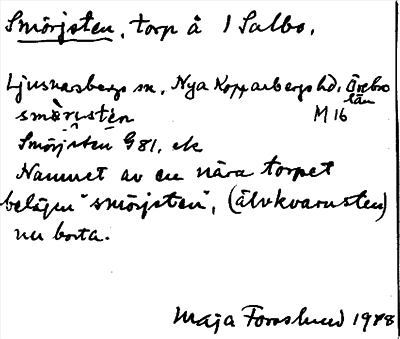 Smörjsten, torp å 1 Salbo.
Ljusnarsbergs sn, Nya Kopparbergs hd, Örebro län
smö̀rjstén M 16
Smörjsten G 81, ek
Namnet av en nära torpet
belägen "smörjsten", (älvkvarnsten)
nu borta.
Maja Forsslund 1978